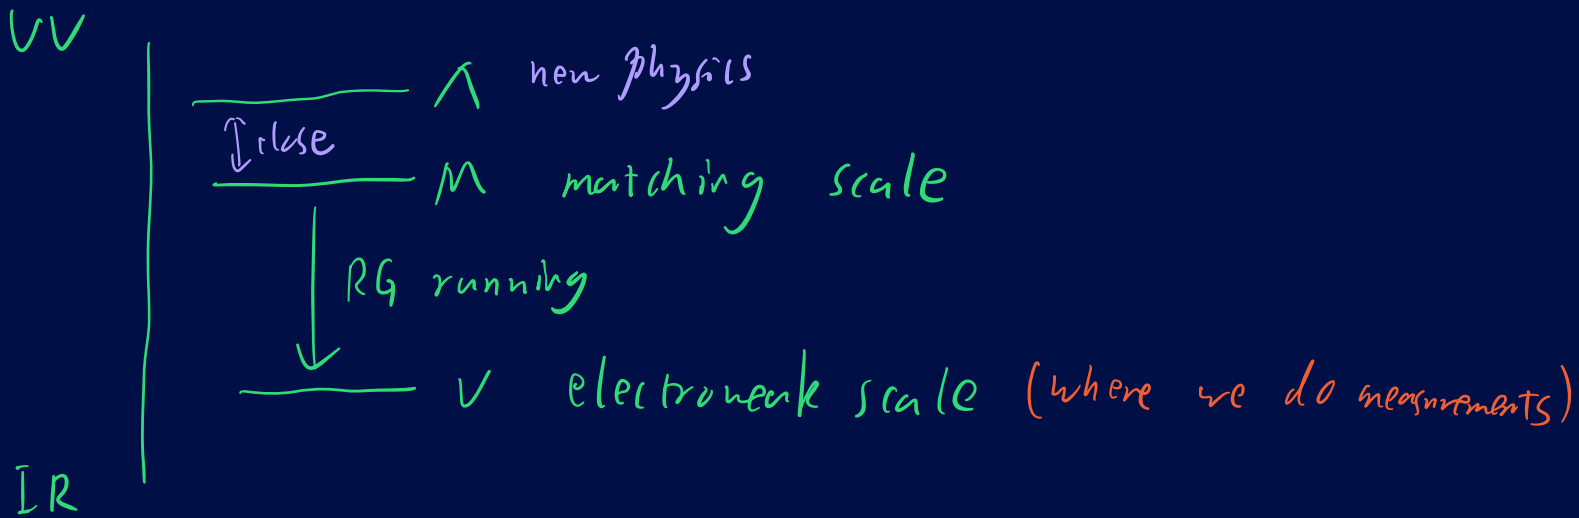 UV
Λ new physics
close
M matching scale
RG running
v electroweak scale (where we do measurements)
IR